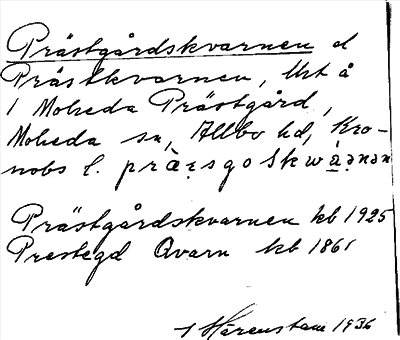 Prästgårdskvarnen el
Prästkvarnen, Urt å
1 Moheda Prästgård,
Moheda sn, Allbo hd, Kro-
nobs l.
Prästgårdskvarnen kb 1925
Prestegd Qvarn kb 1861
Härenstam 1936